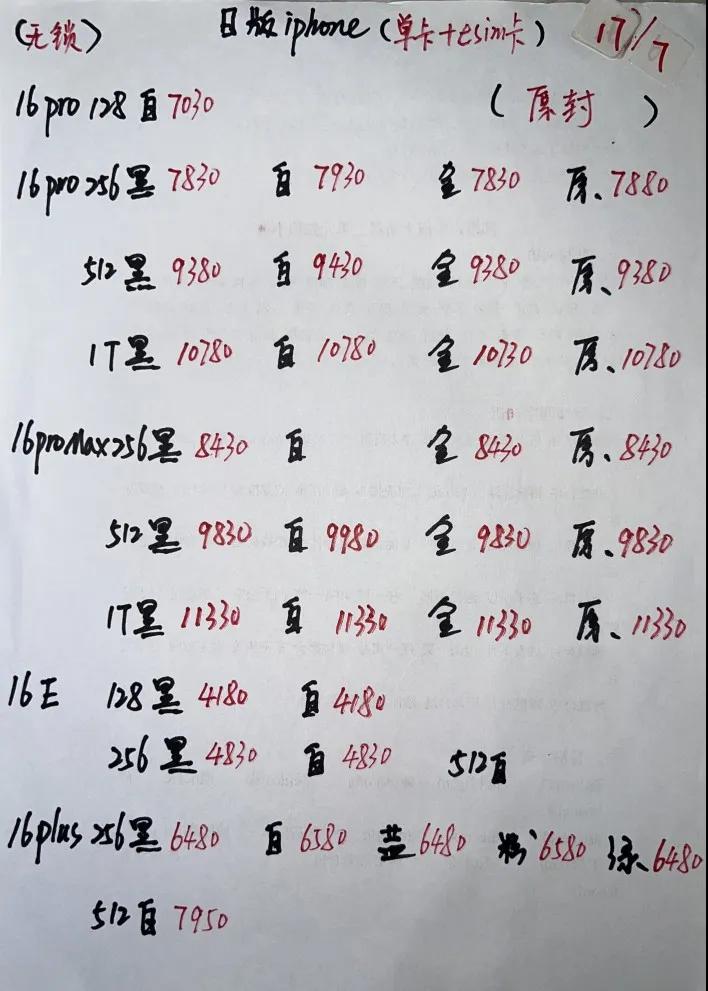 (无锁) 日版iphone (单卡+esim卡) 17/7
16pro 128 白 7030 (原封)
16pro 256 黑 7830 白 7930 金 7830 原、7880
512 黑 9380 白 9430 金 9380 原、9380
1T 黑 10780 白 10780 金 10730 原、10780
16proMax 256 黑 8430 白 金 8430 原、8430
512 黑 9830 白 9980 金 9830 原、9830
1T 黑 11330 白 11330 金 11330 原、11330
16E 128 黑 4180 白 4180
256 黑 4830 白 4830 512 白
16plus 256 黑 6480 白 6580 蓝 6480 粉 6580 绿、6480
512 白 7950